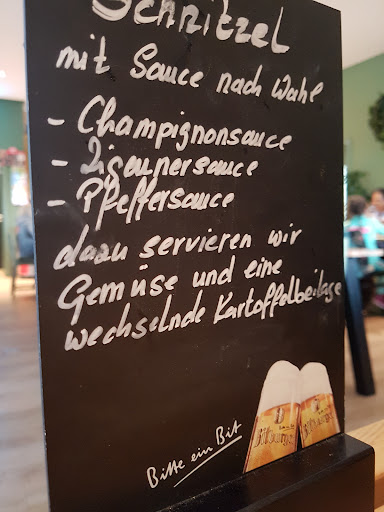 Schnitzel
mit Sauce nach Wahl
- Champignonsauce
- Zigeunersauce
- Pfeffersauce
dazu servieren wir
Gemüse und eine
wechselnde Kartoffelbeilage
Bitte ein Bit